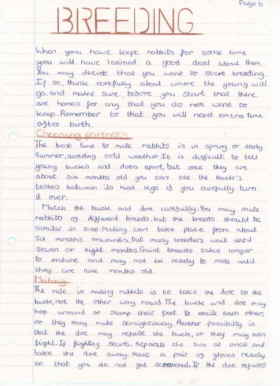 Page 6
BREEDING
When you have kept rabbits for some time
you will have learned a good deal about them.
You may decide that you want to start breeding.
If so, think carefully about where the young will
go, and make sure before you start that there
are homes for any that you do not want to
keep. Remember to that you will need
after birth.
Choosing partners
The best time to mate rabbits is in spring or early
summer, avoiding cold weather. It is difficult to tell
young bucks and does apart, but once they are
about six months old you can see the buck's
testes between its hind legs if you carefully turn
it over.
Match the buck and doe carefully. You may mate
rabbits of different breeds but the breeds should be
similar in size. Mating can take place from about
six months, but many breeders wait until
seven or eight months. Giant breeds take longer
to mature and may not be ready to mate until
they are nine months old.
Mating
The rule in mating rabbits is to take the doe to the
buck, not the other way round. The buck and doe may
hop around or stamp their feet to excite each other,
or they may mate straight away. Another possibility is
that the doe may refuse the buck, or they may even
fight. If fighting starts separate the two at once and
take the doe away. Have a pair of gloves ready
so that you do not get If the doe refuses